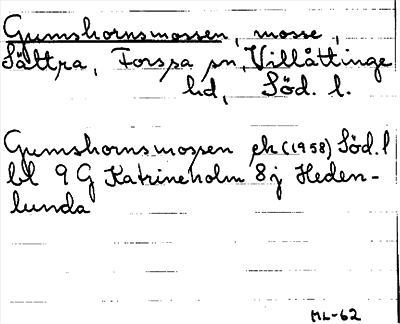 Gumshornsmossen, mosse,
Sättra, Forssa sn, Villåttinge
hd, Söd. l.
Gumshornsmossen ek (1958) Söd. l
bl 9 G Katrineholm 8 j Heden-
lunda
ML-62